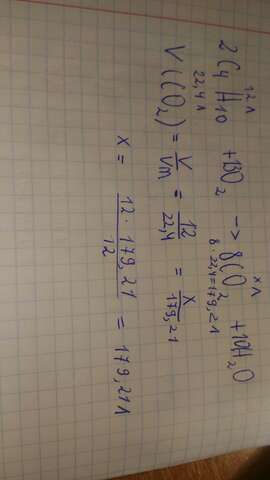 12 л x л
2C4H10 +13O2 -> 8CO2 +10H2O
22,4 л 8·22,4=179,2 л
V(CO2) = V/Vm = 12/22,4 = x/179,2 л
x = 12·179,2 л/12 = 179,2 л л